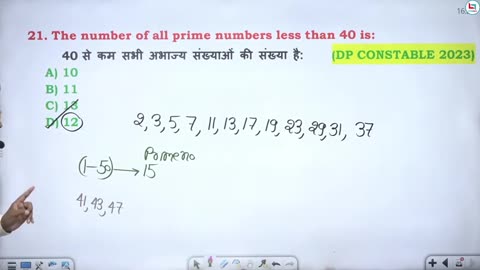 21. The number of all prime numbers less than 40 is:
40 से कम सभी अभाज्य संख्याओं की संख्या है:
(DP CONSTABLE 2023)
A) 10
B) 11
C) 13
D) 12
2, 3, 5, 7, 11, 13, 17, 19, 23, 29, 31, 37
(1-50) → 15
41, 43, 47